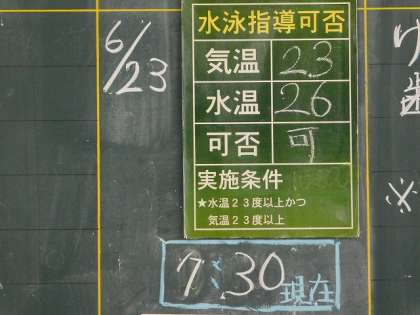 6/23
水泳指導可否
気温 23
水温 26
可否 可
実施条件
★水温23度以上かつ
気温23度以上
7:30現在
け
歯
※